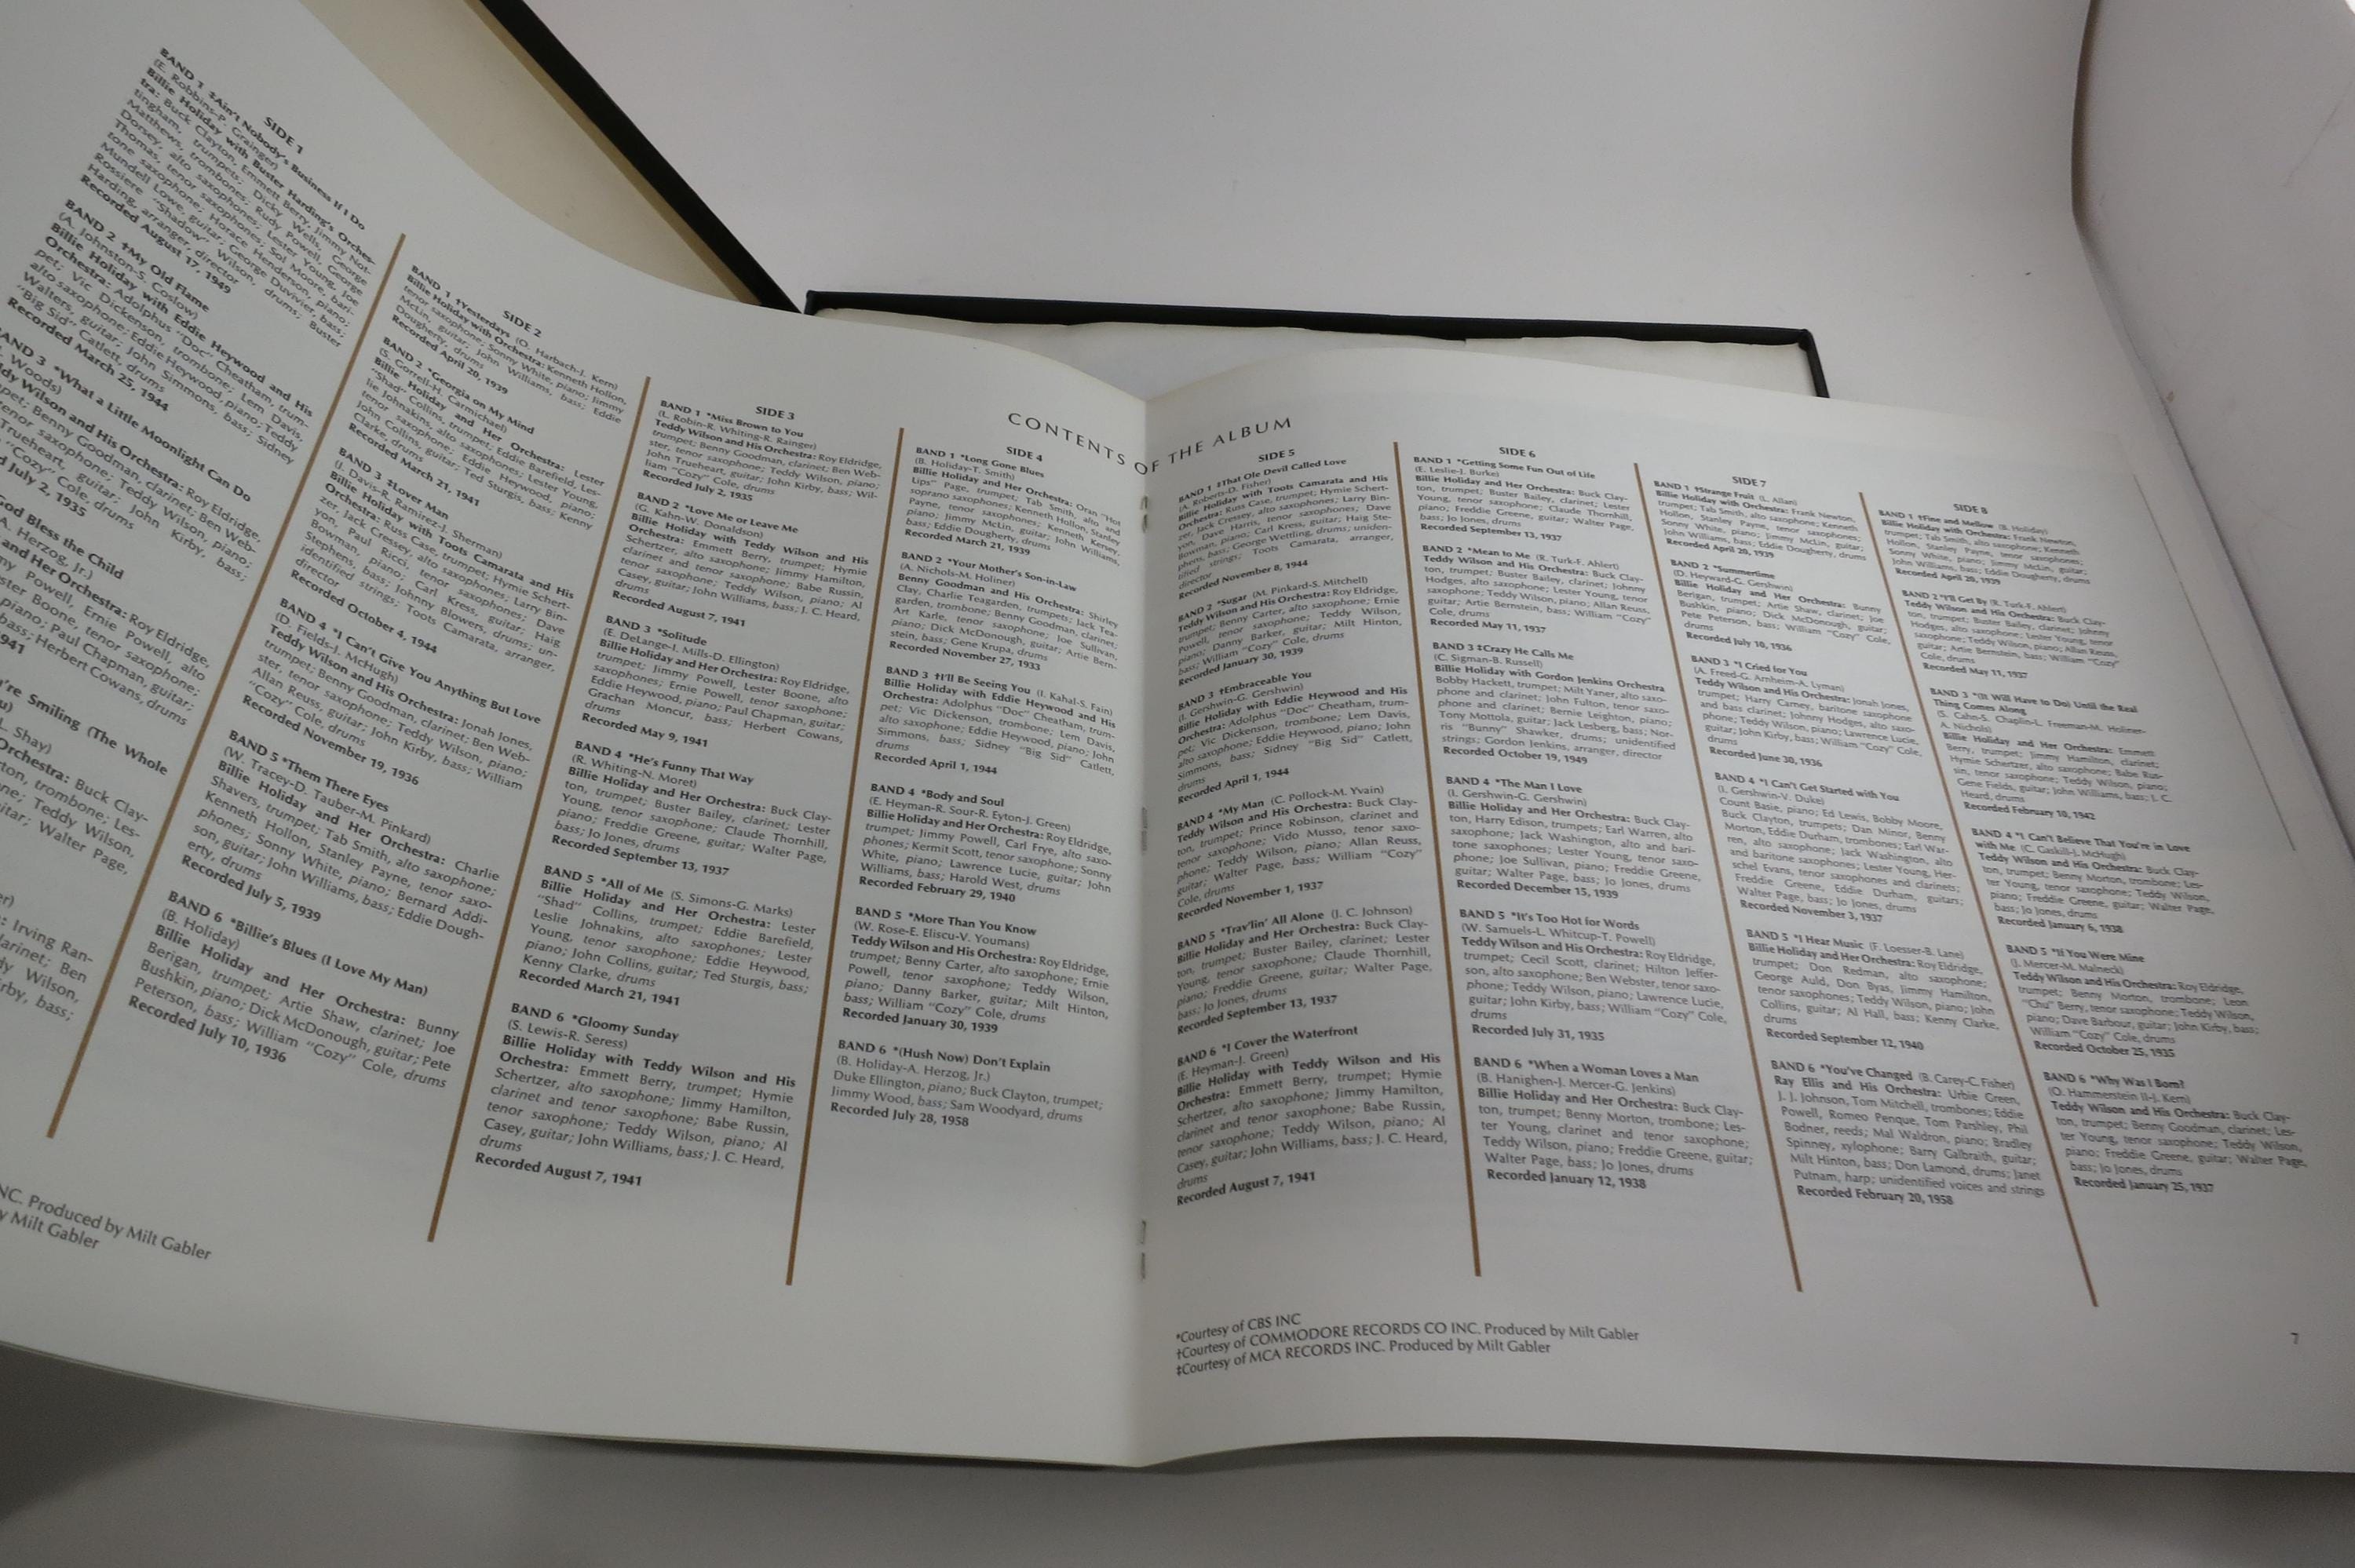 CONTENTS OF THE ALBUM
SIDE 1
BAND 1 ‡Ain't Nobody's Business If I Do
(E. Robbins-P. Grainger)
Billie Holiday with Buster Harding's Orches-
tra: Buck Clayton, Emmett Berry, Jimmy Not-
tingham, trumpets; Dicky Wells, George
Matthews, trombones; Rudy Powell, George
Dorsey, alto saxophones; Lester Young, Joe
Thomas, tenor saxophones; Sol Moore, bari-
tone saxophone; Horace Henderson, piano;
Mundell Lowe, guitar; George Duvivier, bass;
Rossiere "Shadow" Wilson, drums; Buster
Harding, arranger, director
Recorded August 17, 1949
BAND 2 †My Old Flame
(A. Johnston-S. Coslow)
Billie Holiday with Eddie Heywood and His
Orchestra: Adolphus "Doc" Cheatham, trum-
pet; Vic Dickenson, trombone; Lem Davis,
alto saxophone; Eddie Heywood, piano; Teddy
Walters, guitar; John Simmons, bass; Sidney
"Big Sid" Catlett, drums
Recorded March 25, 1944
BAND 3 *What a Little Moonlight Can Do
Woods)
Wilson and His Orchestra: Roy Eldridge,
Benny Goodman, clarinet; Ben Web-
tenor saxophone; Teddy Wilson, piano;
Trueheart, guitar; John Kirby, bass;
"Cozy" Cole, drums
July 2, 1935
God Bless the Child
A. Herzog, Jr.)
and Her Orchestra: Roy Eldridge,
Powell, Ernie Powell, alto
Lester Boone, tenor saxophone;
piano; Paul Chapman, guitar;
bass; Herbert Cowans, drums
1941
Smiling (The Whole
L. Shay)
Orchestra: Buck Clay-
trombone; Les-
Teddy Wilson,
guitar; Walter Page,
Irving Ran-
clarinet; Ben
Wilson,
Kirby, bass;
SIDE 2
BAND 1 †Yesterdays (O. Harbach-J. Kern)
Billie Holiday with Orchestra: Kenneth Hollon,
tenor saxophone; Sonny White, piano; Jimmy
McLin, guitar; John Williams, bass; Eddie
Dougherty, drums
Recorded April 20, 1939
BAND 2 *Georgia on My Mind
(S. Gorrell-H. Carmichael)
Billie Holiday and Her Orchestra:
"Shad" Collins, trumpet; Eddie Barefield, Les-
lie Johnakins, alto saxophones; Lester Young,
tenor saxophone; Eddie Heywood, piano;
John Collins, guitar; Ted Sturgis, bass; Kenny
Clarke, drums
Recorded March 21, 1941
BAND 3 ‡Lover Man
(J. Davis-R. Ramirez-J. Sherman)
Billie Holiday with Toots Camarata and His
Orchestra: Russ Case, trumpet; Hymie Schert-
zer, Jack Cressey, alto saxophones; Larry Bin-
yon, Paul Ricci, tenor saxophones; Dave
Bowman, piano; Carl Kress, guitar; Haig
Stephens, bass; Johnny Blowers, drums; un-
identified strings; Toots Camarata, arranger,
director
Recorded October 4, 1944
BAND 4 *I Can't Give You Anything But Love
(D. Fields-J. McHugh)
Teddy Wilson and His Orchestra: Jonah Jones,
trumpet; Benny Goodman, clarinet; Ben Web-
ster, tenor saxophone; Teddy Wilson, piano;
Allan Reuss, guitar; John Kirby, bass; William
"Cozy" Cole, drums
Recorded November 19, 1936
BAND 5 *Them There Eyes
(W. Tracey-D. Tauber-M. Pinkard)
Billie Holiday and Her Orchestra: Charlie
Shavers, trumpet; Tab Smith, alto saxophone;
Kenneth Hollon, Stanley Payne, tenor saxo-
phones; Sonny White, piano; Bernard Addi-
son, guitar; John Williams, bass; Eddie Dough-
erty, drums
Recorded July 5, 1939
BAND 6 *Billie's Blues (I Love My Man)
(B. Holiday)
Billie Holiday and Her Orchestra: Bunny
Berigan, trumpet; Artie Shaw, clarinet; Joe
Bushkin, piano; Dick McDonough, guitar; Pete
Peterson, bass; William "Cozy" Cole, drums
Recorded July 10, 1936
SIDE 3
BAND 1 *Miss Brown to You
(L. Robin-R. Whiting-R. Rainger)
Teddy Wilson and His Orchestra: Roy Eldridge,
trumpet; Benny Goodman, clarinet; Ben Web-
ster, tenor saxophone; Teddy Wilson, piano;
John Trueheart, guitar; John Kirby, bass; Wil-
liam "Cozy" Cole, drums
Recorded July 2, 1935
BAND 2 *Love Me or Leave Me
(G. Kahn-W. Donaldson)
Billie Holiday with Teddy Wilson and His
Orchestra: Emmett Berry, trumpet; Hymie
Schertzer, alto saxophone; Jimmy Hamilton,
clarinet and tenor saxophone; Babe Russin,
tenor saxophone; Teddy Wilson, piano; Al
Casey, guitar; John Williams, bass; J. C. Heard,
drums
Recorded August 7, 1941
BAND 3 *Solitude
(E. DeLange-I. Mills-D. Ellington)
Billie Holiday and Her Orchestra: Roy Eldridge,
trumpet; Jimmy Powell, Lester Boone, alto
saxophones; Ernie Powell, tenor saxophone;
Eddie Heywood, piano; Paul Chapman, guitar;
Grachan Moncur, bass; Herbert Cowans,
drums
Recorded May 9, 1941
BAND 4 *He's Funny That Way
(R. Whiting-N. Moret)
Billie Holiday and Her Orchestra: Buck Clay-
ton, trumpet; Buster Bailey, clarinet; Lester
Young, tenor saxophone; Claude Thornhill,
piano; Freddie Greene, guitar; Walter Page,
bass; Jo Jones, drums
Recorded September 13, 1937
BAND 5 *All of Me (S. Simons-G. Marks)
Billie Holiday and Her Orchestra: Lester
"Shad" Collins, trumpet; Eddie Barefield,
Leslie Johnakins, alto saxophones; Lester
Young, tenor saxophone; Eddie Heywood,
piano; John Collins, guitar; Ted Sturgis, bass;
Kenny Clarke, drums
Recorded March 21, 1941
BAND 6 *Gloomy Sunday
(S. Lewis-R. Seress)
Billie Holiday with Teddy Wilson and His
Orchestra: Emmett Berry, trumpet; Hymie
Schertzer, alto saxophone; Jimmy Hamilton,
clarinet and tenor saxophone; Babe Russin,
tenor saxophone; Teddy Wilson, piano; Al
Casey, guitar; John Williams, bass; J. C. Heard,
drums
Recorded August 7, 1941
SIDE 4
BAND 1 *Long Gone Blues
(B. Holiday-T. Smith)
Billie Holiday and Her Orchestra: Oran "Hot
Lips" Page, trumpet; Tab Smith, alto and
soprano saxophones; Kenneth Hollon, Stanley
Payne, tenor saxophones; Kenneth Kersey,
piano; Jimmy McLin, guitar; John Williams,
bass; Eddie Dougherty, drums
Recorded March 21, 1939
BAND 2 *Your Mother's Son-in-Law
(A. Nichols-M. Holiner)
Benny Goodman and His Orchestra: Shirley
Clay, Charlie Teagarden, trumpets; Jack Tea-
garden, trombone; Benny Goodman, clarinet;
Art Karle, tenor saxophone; Joe Sullivan,
piano; Dick McDonough, guitar; Artie Bern-
stein, bass; Gene Krupa, drums
Recorded November 27, 1933
BAND 3 †I'll Be Seeing You (I. Kahal-S. Fain)
Billie Holiday with Eddie Heywood and His
Orchestra: Adolphus "Doc" Cheatham, trum-
pet; Vic Dickenson, trombone; Lem Davis,
alto saxophone; Eddie Heywood, piano; John
Simmons, bass; Sidney "Big Sid" Catlett,
drums
Recorded April 1, 1944
BAND 4 *Body and Soul
(E. Heyman-R. Sour-R. Eyton-J. Green)
Billie Holiday and Her Orchestra: Roy Eldridge,
trumpet; Jimmy Powell, Carl Frye, alto saxo-
phones; Kermit Scott, tenor saxophone; Sonny
White, piano; Lawrence Lucie, guitar; John
Williams, bass; Harold West, drums
Recorded February 29, 1940
BAND 5 *More Than You Know
(W. Rose-E. Eliscu-V. Youmans)
Teddy Wilson and His Orchestra: Roy Eldridge,
trumpet; Benny Carter, alto saxophone; Ernie
Powell, tenor saxophone; Teddy Wilson,
piano; Danny Barker, guitar; Milt Hinton,
bass; William "Cozy" Cole, drums
Recorded January 30, 1939
BAND 6 *(Hush Now) Don't Explain
(B. Holiday-A. Herzog, Jr.)
Duke Ellington, piano; Buck Clayton, trumpet;
Jimmy Wood, bass; Sam Woodyard, drums
Recorded July 28, 1958
NC. Produced by Milt Gabler
y Milt Gabler
SIDE 5
BAND 1 ‡That Ole Devil Called Love
(A. Roberts-D. Fisher)
Billie Holiday with Toots Camarata and His
Orchestra: Russ Case, trumpet; Hymie Schert-
zer, Jack Cressey, alto saxophones; Larry Bin-
yon, Dave Harris, tenor saxophones; Dave
Bowman, piano; Carl Kress, guitar; Haig Ste-
phens, bass; George Wettling, drums; uniden-
tified strings; Toots Camarata, arranger,
director
Recorded November 8, 1944
BAND 2 *Sugar (M. Pinkard-S. Mitchell)
Teddy Wilson and His Orchestra: Roy Eldridge,
trumpet; Benny Carter, alto saxophone; Ernie
Powell, tenor saxophone; Teddy Wilson,
piano; Danny Barker, guitar; Milt Hinton,
bass; William "Cozy" Cole, drums
Recorded January 30, 1939
BAND 3 †Embraceable You
(I. Gershwin-G. Gershwin)
Billie Holiday with Eddie Heywood and His
Orchestra: Adolphus "Doc" Cheatham, trum-
pet; Vic Dickenson, trombone; Lem Davis,
alto saxophone; Eddie Heywood, piano; John
Simmons, bass; Sidney "Big Sid" Catlett,
drums
Recorded April 1, 1944
BAND 4 *My Man (C. Pollock-M. Yvain)
Teddy Wilson and His Orchestra: Buck Clay-
ton, trumpet; Prince Robinson, clarinet and
tenor saxophone; Vido Musso, tenor saxo-
phone; Teddy Wilson, piano; Allan Reuss,
guitar; Walter Page, bass; William "Cozy"
Cole, drums
Recorded November 1, 1937
BAND 5 *Trav'lin' All Alone (J. C. Johnson)
Billie Holiday and Her Orchestra: Buck Clay-
ton, trumpet; Buster Bailey, clarinet; Lester
Young, tenor saxophone; Claude Thornhill,
piano; Freddie Greene, guitar; Walter Page,
bass; Jo Jones, drums
Recorded September 13, 1937
BAND 6 *I Cover the Waterfront
(E. Heyman-J. Green)
Billie Holiday with Teddy Wilson and His
Orchestra: Emmett Berry, trumpet; Hymie
Schertzer, alto saxophone; Jimmy Hamilton,
clarinet and tenor saxophone; Babe Russin,
tenor saxophone; Teddy Wilson, piano; Al
Casey, guitar; John Williams, bass; J. C. Heard,
drums
Recorded August 7, 1941
SIDE 6
BAND 1 *Getting Some Fun Out of Life
(E. Leslie-J. Burke)
Billie Holiday and Her Orchestra: Buck Clay-
ton, trumpet; Buster Bailey, clarinet; Lester
Young, tenor saxophone; Claude Thornhill,
piano; Freddie Greene, guitar; Walter Page,
bass; Jo Jones, drums
Recorded September 13, 1937
BAND 2 *Mean to Me (R. Turk-F. Ahlert)
Teddy Wilson and His Orchestra: Buck Clay-
ton, trumpet; Buster Bailey, clarinet; Johnny
Hodges, alto saxophone; Lester Young, tenor
saxophone; Teddy Wilson, piano; Allan Reuss,
guitar; Artie Bernstein, bass; William "Cozy"
Cole, drums
Recorded May 11, 1937
BAND 3 ‡Crazy He Calls Me
(C. Sigman-B. Russell)
Billie Holiday with Gordon Jenkins Orchestra
Bobby Hackett, trumpet; Milt Yaner, alto saxo-
phone and clarinet; John Fulton, tenor saxo-
phone and clarinet; Bernie Leighton, piano;
Tony Mottola, guitar; Jack Lesberg, bass; Nor-
ris "Bunny" Shawker, drums; unidentified
strings; Gordon Jenkins, arranger, director
Recorded October 19, 1949
BAND 4 *The Man I Love
(I. Gershwin-G. Gershwin)
Billie Holiday and Her Orchestra: Buck Clay-
ton, Harry Edison, trumpets; Earl Warren, alto
saxophone; Jack Washington, alto and bari-
tone saxophones; Lester Young, tenor saxo-
phone; Joe Sullivan, piano; Freddie Greene,
guitar; Walter Page, bass; Jo Jones, drums
Recorded December 15, 1939
BAND 5 *It's Too Hot for Words
(W. Samuels-L. Whitcup-T. Powell)
Teddy Wilson and His Orchestra: Roy Eldridge,
trumpet; Cecil Scott, clarinet; Hilton Jeffer-
son, alto saxophone; Ben Webster, tenor saxo-
phone; Teddy Wilson, piano; Lawrence Lucie,
guitar; John Kirby, bass; William "Cozy" Cole,
drums
Recorded July 31, 1935
BAND 6 *When a Woman Loves a Man
(B. Hanighen-J. Mercer-G. Jenkins)
Billie Holiday and Her Orchestra: Buck Clay-
ton, trumpet; Benny Morton, trombone; Les-
ter Young, clarinet and tenor saxophone;
Teddy Wilson, piano; Freddie Greene, guitar;
Walter Page, bass; Jo Jones, drums
Recorded January 12, 1938
SIDE 7
BAND 1 †Strange Fruit (L. Allan)
Billie Holiday with Orchestra: Frank Newton,
trumpet; Tab Smith, alto saxophone; Kenneth
Hollon, Stanley Payne, tenor saxophones;
Sonny White, piano; Jimmy McLin, guitar;
John Williams, bass; Eddie Dougherty, drums
Recorded April 20, 1939
BAND 2 *Summertime
(D. Heyward-G. Gershwin)
Billie Holiday and Her Orchestra: Bunny
Berigan, trumpet; Artie Shaw, clarinet; Joe
Bushkin, piano; Dick McDonough, guitar;
Pete Peterson, bass; William "Cozy" Cole,
drums
Recorded July 10, 1936
BAND 3 *I Cried for You
(A. Freed-G. Arnheim-A. Lyman)
Teddy Wilson and His Orchestra: Jonah Jones,
trumpet; Harry Carney, baritone saxophone
and bass clarinet; Johnny Hodges, alto saxo-
phone; Teddy Wilson, piano; Lawrence Lucie,
guitar; John Kirby, bass; William "Cozy" Cole,
drums
Recorded June 30, 1936
BAND 4 *I Can't Get Started with You
(I. Gershwin-V. Duke)
Count Basie, piano; Ed Lewis, Bobby Moore,
Buck Clayton, trumpets; Dan Minor, Benny
Morton, Eddie Durham, trombones; Earl War-
ren, alto saxophone; Jack Washington, alto
and baritone saxophones; Lester Young, Her-
schel Evans, tenor saxophones and clarinets;
Freddie Greene, Eddie Durham, guitars;
Walter Page, bass; Jo Jones, drums
Recorded November 3, 1937
BAND 5 *I Hear Music (F. Loesser-B. Lane)
Billie Holiday and Her Orchestra: Roy Eldridge,
trumpet; Don Redman, alto saxophone;
George Auld, Don Byas, Jimmy Hamilton,
tenor saxophones; Teddy Wilson, piano; John
Collins, guitar; Al Hall, bass; Kenny Clarke,
drums
Recorded September 12, 1940
BAND 6 *You've Changed (B. Carey-C. Fisher)
Ray Ellis and His Orchestra: Urbie Green,
J. J. Johnson, Tom Mitchell, trombones; Eddie
Powell, Romeo Penque, Tom Parshley, Phil
Bodner, reeds; Mal Waldron, piano; Bradley
Spinney, xylophone; Barry Galbraith, guitar;
Milt Hinton, bass; Don Lamond, drums; Janet
Putnam, harp; unidentified voices and strings
Recorded February 20, 1958
SIDE 8
BAND 1 †Fine and Mellow (B. Holiday)
Billie Holiday with Orchestra: Frank Newton,
trumpet; Tab Smith, alto saxophone; Kenneth
Hollon, Stanley Payne, tenor saxophones;
Sonny White, piano; Jimmy McLin, guitar;
John Williams, bass; Eddie Dougherty, drums
Recorded April 20, 1939
BAND 2 *I'll Get By (R. Turk-F. Ahlert)
Teddy Wilson and His Orchestra: Buck Clay-
ton, trumpet; Buster Bailey, clarinet; Johnny
Hodges, alto saxophone; Lester Young, tenor
saxophone; Teddy Wilson, piano; Allan Reuss,
guitar; Artie Bernstein, bass; William "Cozy"
Cole, drums
Recorded May 11, 1937
BAND 3 *(It Will Have to Do) Until the Real
Thing Comes Along
(S. Cahn-S. Chaplin-L. Freeman-M. Holiner-
A. Nichols)
Billie Holiday and Her Orchestra: Emmett
Berry, trumpet; Jimmy Hamilton, clarinet;
Hymie Schertzer, alto saxophone; Babe Rus-
sin, tenor saxophone; Teddy Wilson, piano;
Gene Fields, guitar; John Williams, bass; J. C.
Heard, drums
Recorded February 10, 1942
BAND 4 *I Can't Believe That You're in Love
with Me (C. Gaskill-J. McHugh)
Teddy Wilson and His Orchestra: Buck Clay-
ton, trumpet; Benny Morton, trombone; Les-
ter Young, tenor saxophone; Teddy Wilson,
piano; Freddie Greene, guitar; Walter Page,
bass; Jo Jones, drums
Recorded January 6, 1938
BAND 5 *If You Were Mine
(J. Mercer-M. Malneck)
Teddy Wilson and His Orchestra: Roy Eldridge,
trumpet; Benny Morton, trombone; Leon
"Chu" Berry, tenor saxophone; Teddy Wilson,
piano; Dave Barbour, guitar; John Kirby, bass;
William "Cozy" Cole, drums
Recorded October 25, 1935
BAND 6 *Why Was I Born?
(O. Hammerstein II-J. Kern)
Teddy Wilson and His Orchestra: Buck Clay-
ton, trumpet; Benny Goodman, clarinet; Les-
ter Young, tenor saxophone; Teddy Wilson,
piano; Freddie Greene, guitar; Walter Page,
bass; Jo Jones, drums
Recorded January 25, 1937
*Courtesy of CBS INC
†Courtesy of COMMODORE RECORDS CO INC. Produced by Milt Gabler
‡Courtesy of MCA RECORDS INC. Produced by Milt Gabler
7